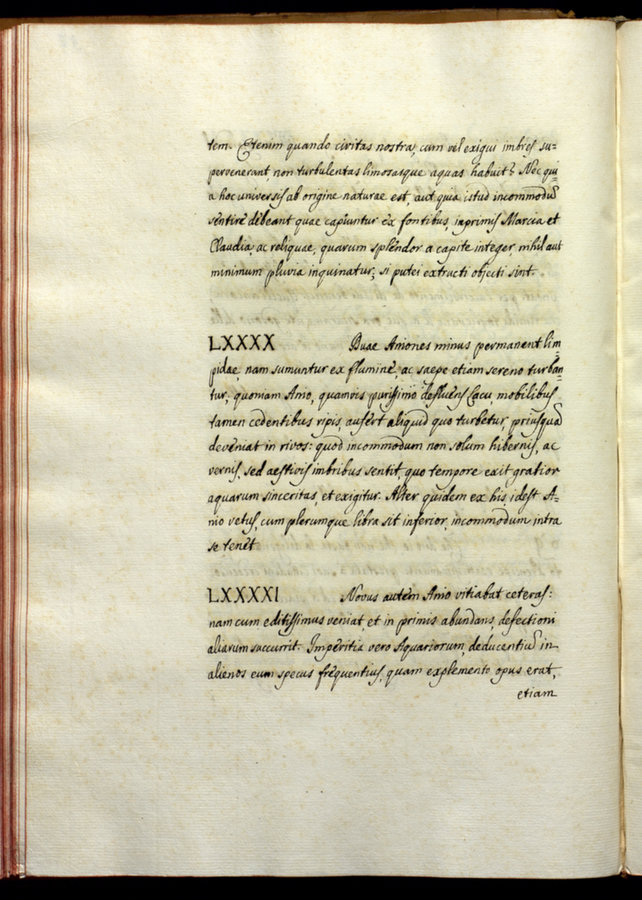 tem. Etenim quando civitas nostra, cum vel exigui imbres su=
pervenerant, non turbulentas limosasque aquas habuit? Nec qui=
a hoc universis ab origine naturae est, aut quia istud incommodũ
sentire debeant quae capiuntur ex fontibus, inprimis Marcia et
Claudia, ac reliquae, quarum splendor a capite integer, nihil aut
minimum pluvia inquinatur, si putei extructi objecti sint.
LXXXX Duae Aniones minus permanent lim
pidae, nam sumuntur ex flumine, ac saepe etiam sereno turban
tur, quoniam Anio, quamvis purissimo defluens Lacu, mobilibus
tamen cedentibus ripis, aufert aliquid quo turbetur, priusquã
deveniat in rivos: quod incommodum non solum hibernis, ac
vernis, sed aestivis imbribus sentit, quo tempore exit gratior
aquarum sinceritas, et exigitur. Alter quidem ex his, idest A=
nio vetus, cum plerumque libra sit inferior, incommodum intra
se tenet
LXXXXI Novus autem Anio vitiabat ceteras:
nam cum editissimus veniat et in primis abundans, defectioni
aliarum succurit. Imperitia vero Aquariorum, deducentiũ in
alienos eum specus frequentius, quam explemento opus erat,
etiam